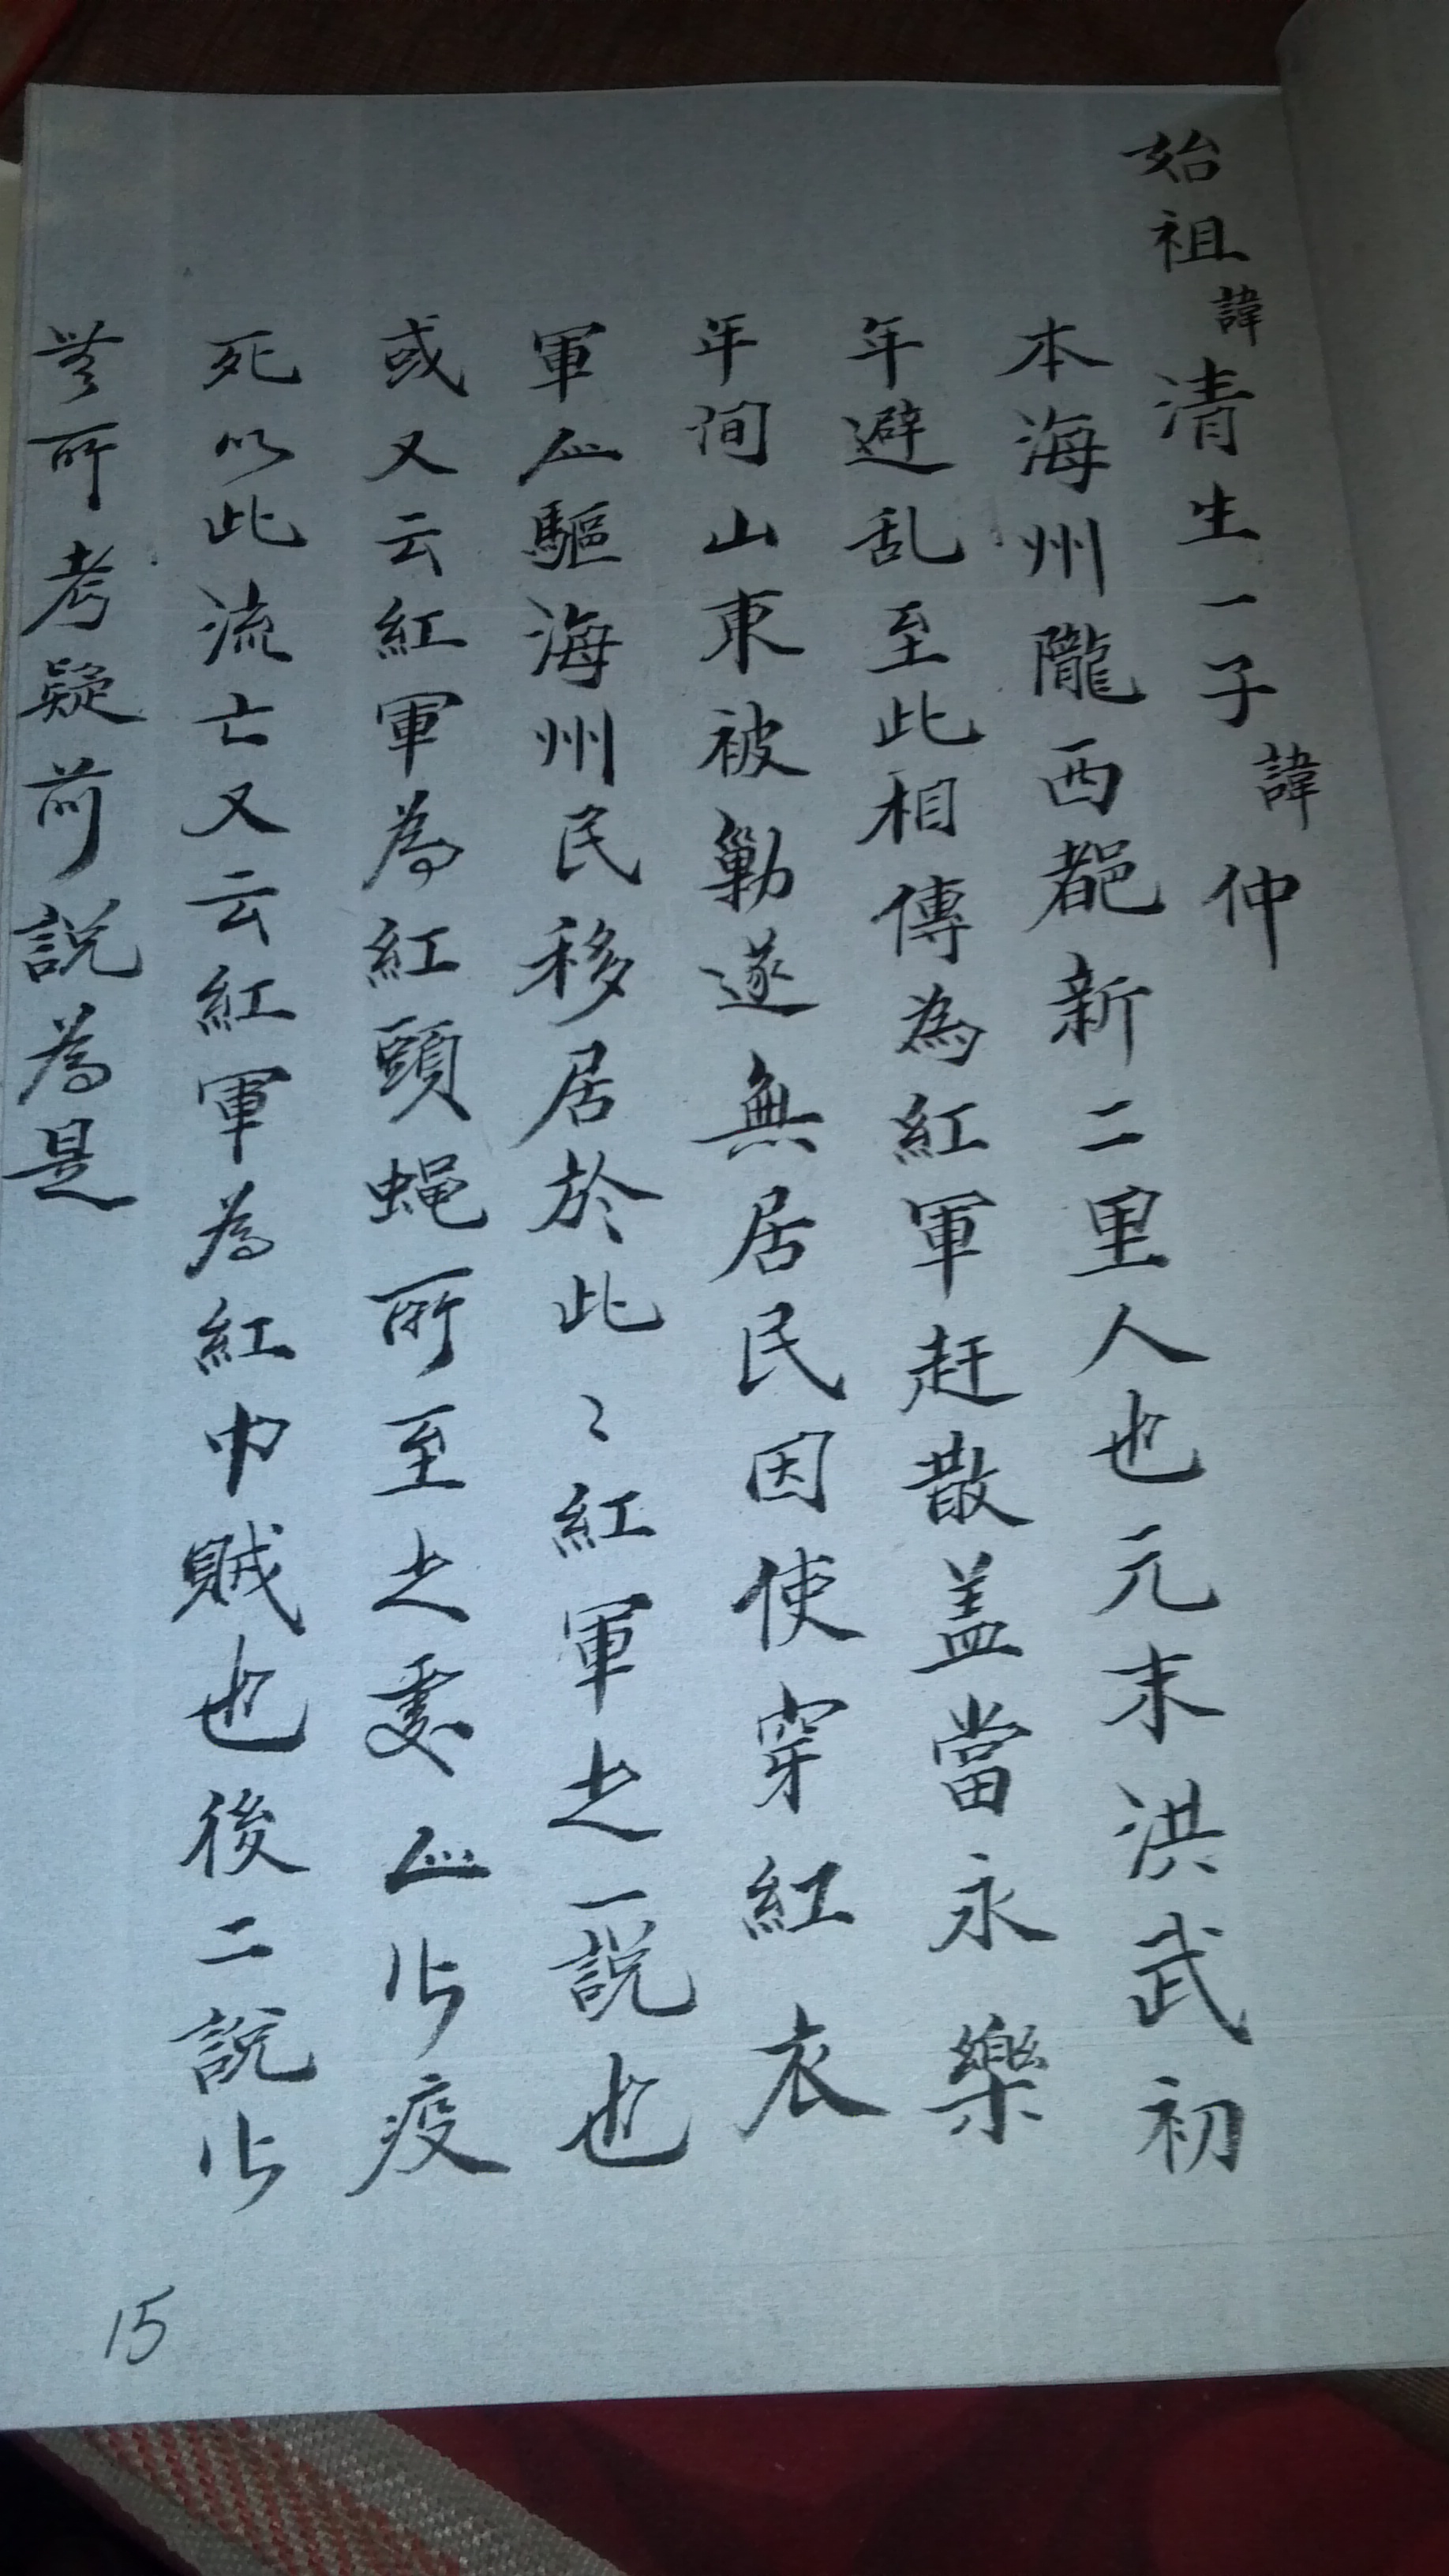 始祖諱清生一子諱仲
本海州隴西都新二里人也元末洪武初
年避乱至此相傳為紅軍赶散盖當永樂
年间山東被勦遂無居民因使穿紅衣
軍驅海州民移居於此〻紅軍之一說也
或又云紅軍為紅頭蝇所至之處疫
死以此流亡又云紅軍為紅巾贼也後二說
所考疑前說為是
15